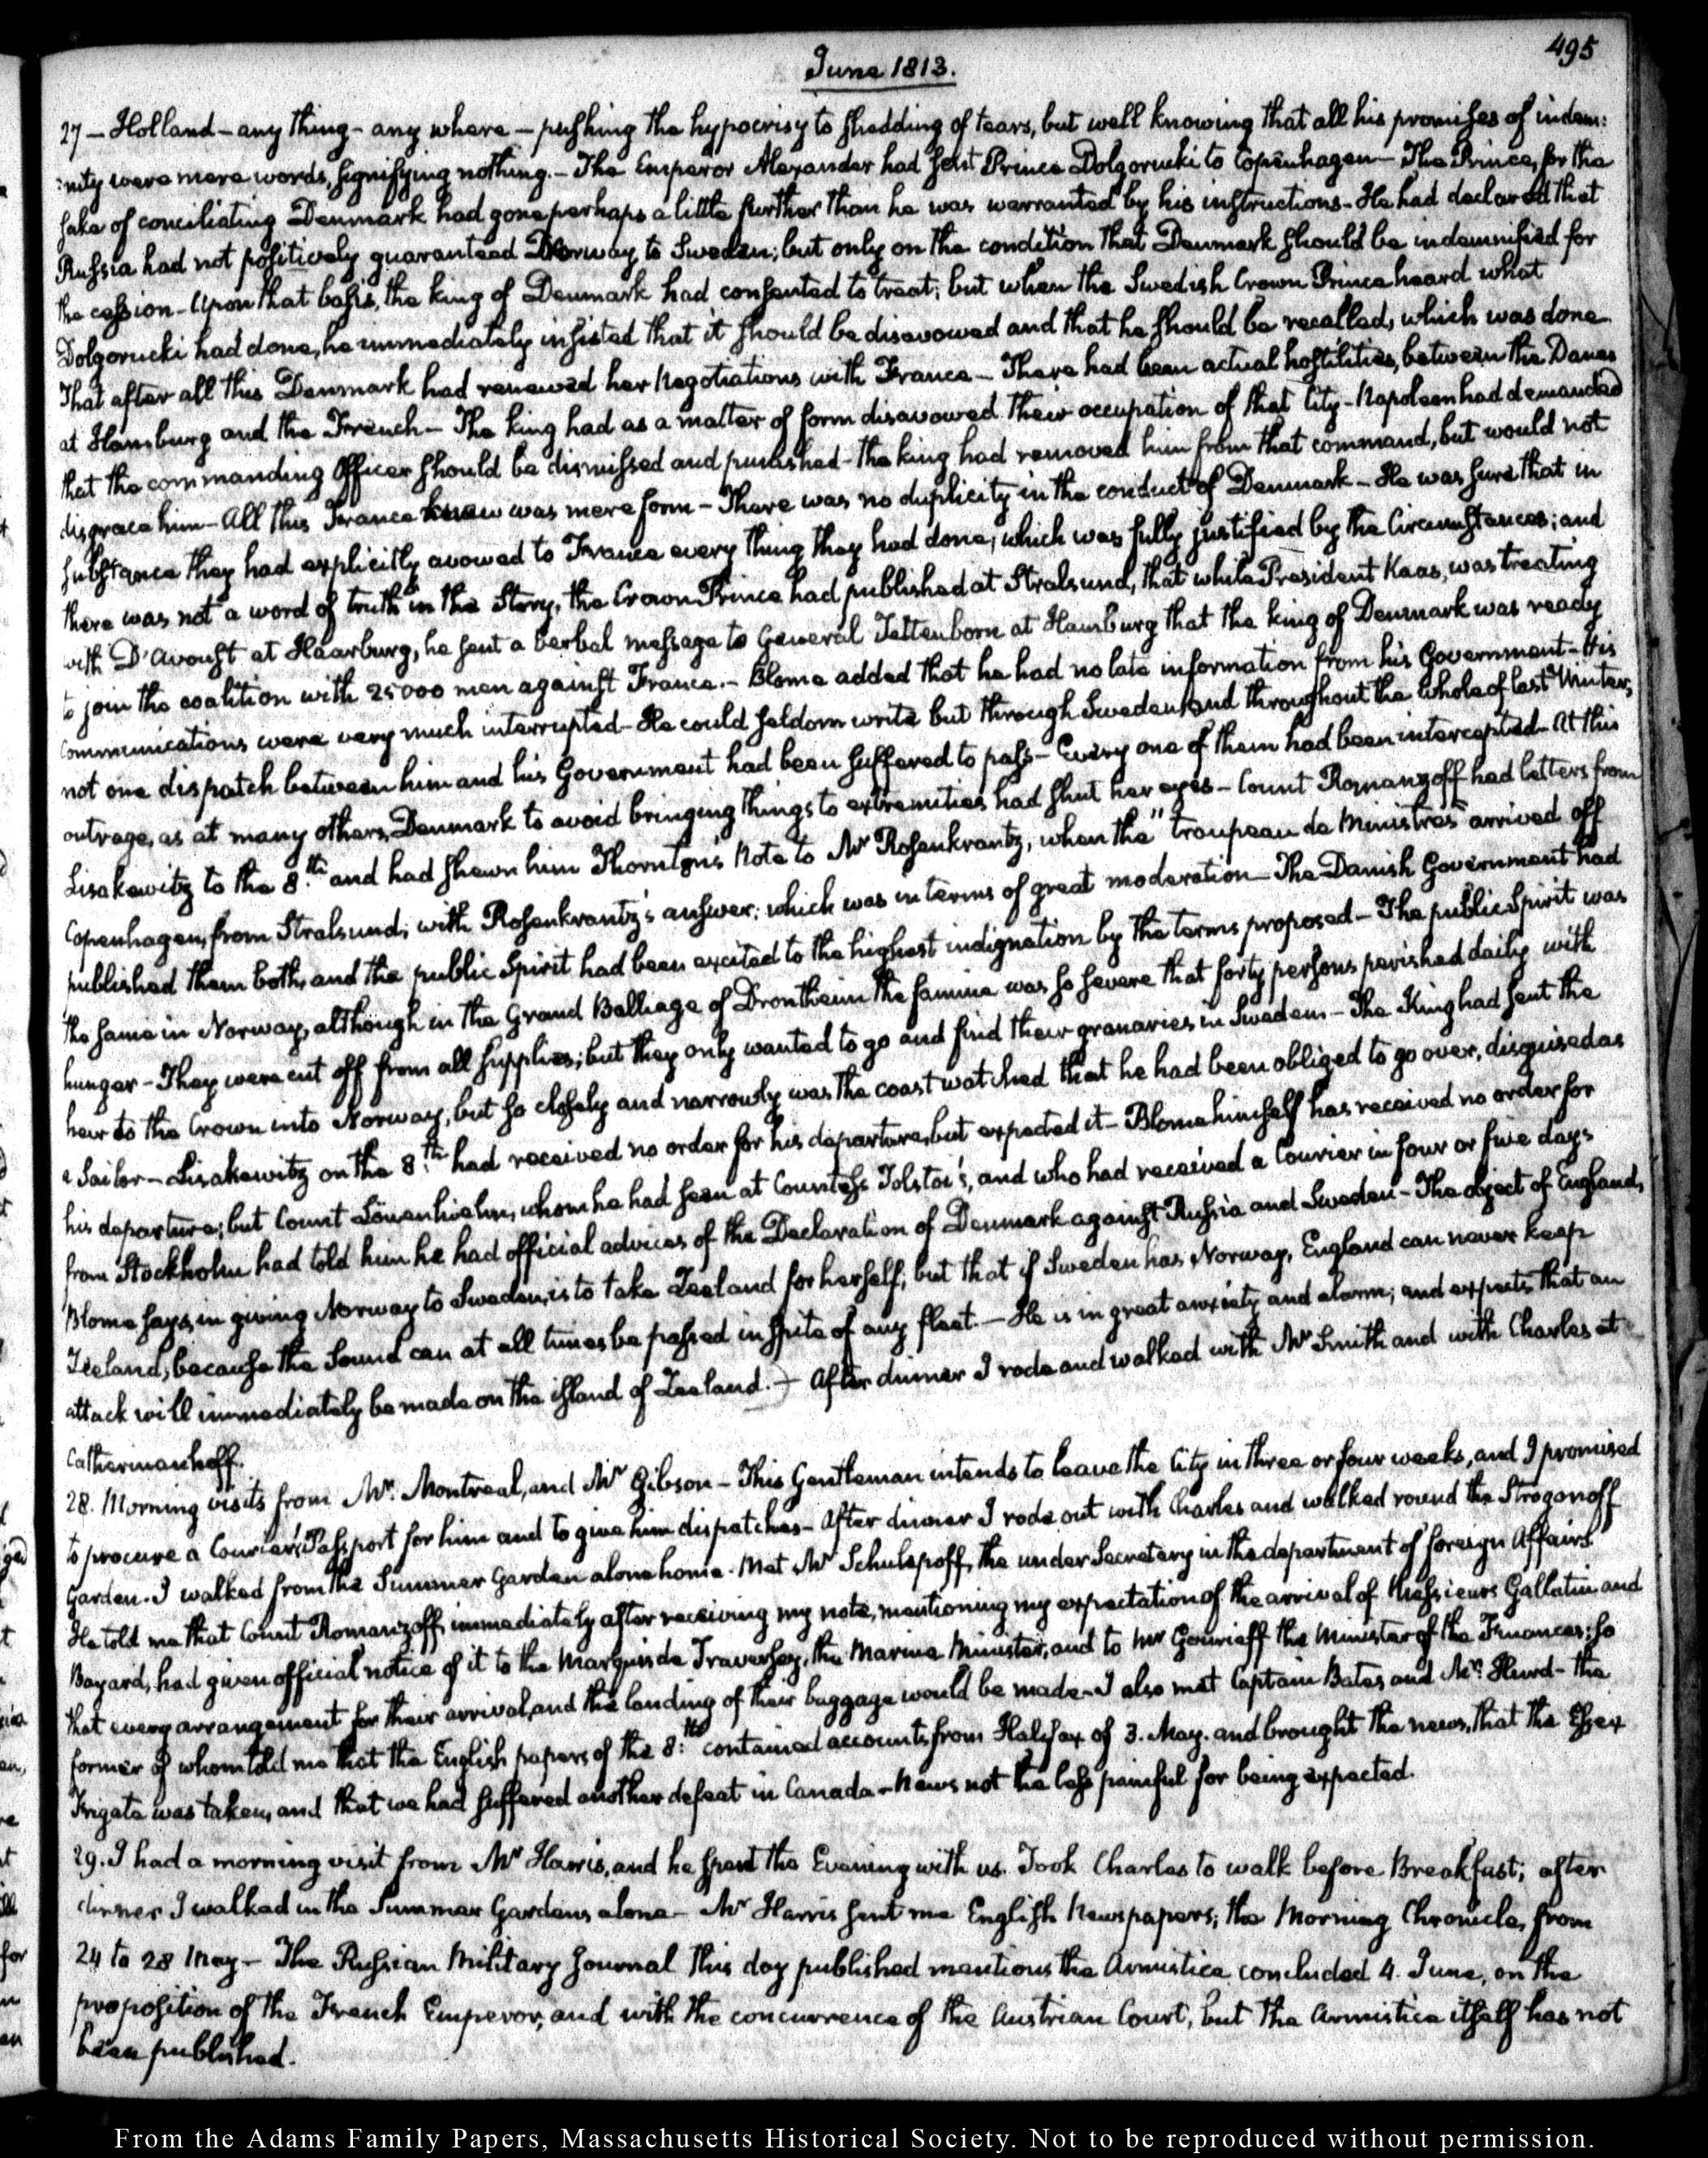 495
June 1813.
27 — Holland — any thing — any where — pushing the hypocrisy to shedding of tears, but well knowing that all his promises of indem:
:nity were mere words, signifying nothing. — The Emperor Alexander had sent Prince Dolgorucki to Copenhagen — The Prince, for the
sake of conciliating Denmark had gone perhaps a little further than he was warranted by his instructions — He had declared that
Russia had not positively guaranteed Norway to Sweden; but only on the condition that Denmark should be indemnified for
the cession — Upon that basis, the king of Denmark had consented to treat; but when the Swedish Crown Prince heard what
Dolgorucki had done, he immediately insisted that it should be disavowed and that he should be recalled, which was done
That after all this Denmark had renewed her Negotiations with France — There had been actual hostilities, between the Danes
at Hamburg and the French — The king had as a matter of form disavowed their occupation of that City — Napoleon had demanded
that the commanding Officer should be dismissed and punished — the king had removed him from that command, but would not
disgrace him — All this France knew was mere form — There was no duplicity in the conduct of Denmark — He was sure that in
substance they had explicitly avowed to France every thing they had done, which was fully justified by the Circumstances; and
there was not a word of truth in the Story, the Crown Prince had published at Stralsund, that while President Kaas, was treating
with D'avoust at Haarburg, he sent a verbal message to General Tettenborn at Hamburg that the king of Denmark was ready
to join the coalition with 25000 men against France. — Blome added that he had no late information from his Government — His
communications were very much interrupted — He could seldom write but through Sweden, and throughout the whole of last Winter,
not one dispatch between him and his Government had been suffered to pass — Every one of them had been intercepted — At this
outrage, as at many others, Denmark to avoid bringing things to extremities had shut her eyes — Count Romanzoff had letters from
Lisakewitz to the 8.th and had shewn him Thornton's Note to Mr Rosenkrantz, when the "troupeau de Ministres" arrived off
Copenhagen, from Stralsund; with Rosenkrantz's answer; which was in terms of great moderation — The Danish Government had
published them both, and the public Spirit had been excited to the highest indignation by the terms proposed — The public Spirit was
the same in Norway, although in the Grand Balliage of Drontheim the famine was so severe that forty persons perished daily with
hunger — They were cut off from all supplies; but they only wanted to go and find their granaries in Sweden — The King had sent the
heir to the Crown into Norway, but so closely and narrowly was the coast watched that he had been obliged to go over, disguised as
a Sailor — Lisakewitz on the 8.th had received no order for his departure, but expected it — Blome himself has received no order for
his departure; but Count Löwenhielm, whom he had seen at Countess Tolstoi's, and who had received a Courier in four or five days
from Stockholm had told him he had official advices of the Declaration of Denmark against Russia and Sweden — The object of England,
Blome says, in giving Norway to Sweden, is to take Zeeland for herself; but that if Sweden has Norway, England can never keep
Zeeland, because the Sound can at all times be passed in spite of any fleet. — He is in great anxiety and alarm; and expects that an
attack will immediately be made on the island of Zeeland. — After dinner I rode and walked with Mr Smith and with Charles at
Catherinenhoff.
28. Morning visits from Mr. Montreal, and Mr Gibson — This Gentleman intends to leave the City in three or four weeks, and I promised
to procure a Courier's Passport for him and to give him dispatches — After dinner I rode out with Charles and walked round the Stroganoff
Garden. I walked from the Summer Garden alone home. Met Mr Schulepoff, the under Secretary in the department of foreign Affairs
He told me that Count Romanzoff, immediately after receiving my note, mentioning my expectation of the arrival of Messieurs Gallatin and
Bayard, had given official notice of it to the Marquis de Traversay, the Marine Minister, and to Mr Gourieff the Minister of the Finances; so
that every arrangement for their arrival, and the landing of their baggage would be made — I also met Captain Bates and Mr. Hurd — the
former of whom told me that the English papers of the 8.th contained accounts from Halifax of 3. May. and brought the news, that the Essex
Frigate was taken, and that we had suffered another defeat in Canada — News not the less painful for being expected.
29. I had a morning visit from Mr Harris, and he spent the Evening with us. Took Charles to walk before Breakfast; after
dinner I walked in the Summer Gardens alone — Mr Harris sent me English Newspapers; the Morning Chronicle, from
24 to 28 May — The Russian Military Journal this day published mentions the Armistice concluded 4. June, on the
proposition of the French Emperor, and with the concurrence of the Austrian Court, but the Armistice itself has not
been published.
From the Adams Family Papers, Massachusetts Historical Society. Not to be reproduced without permission.